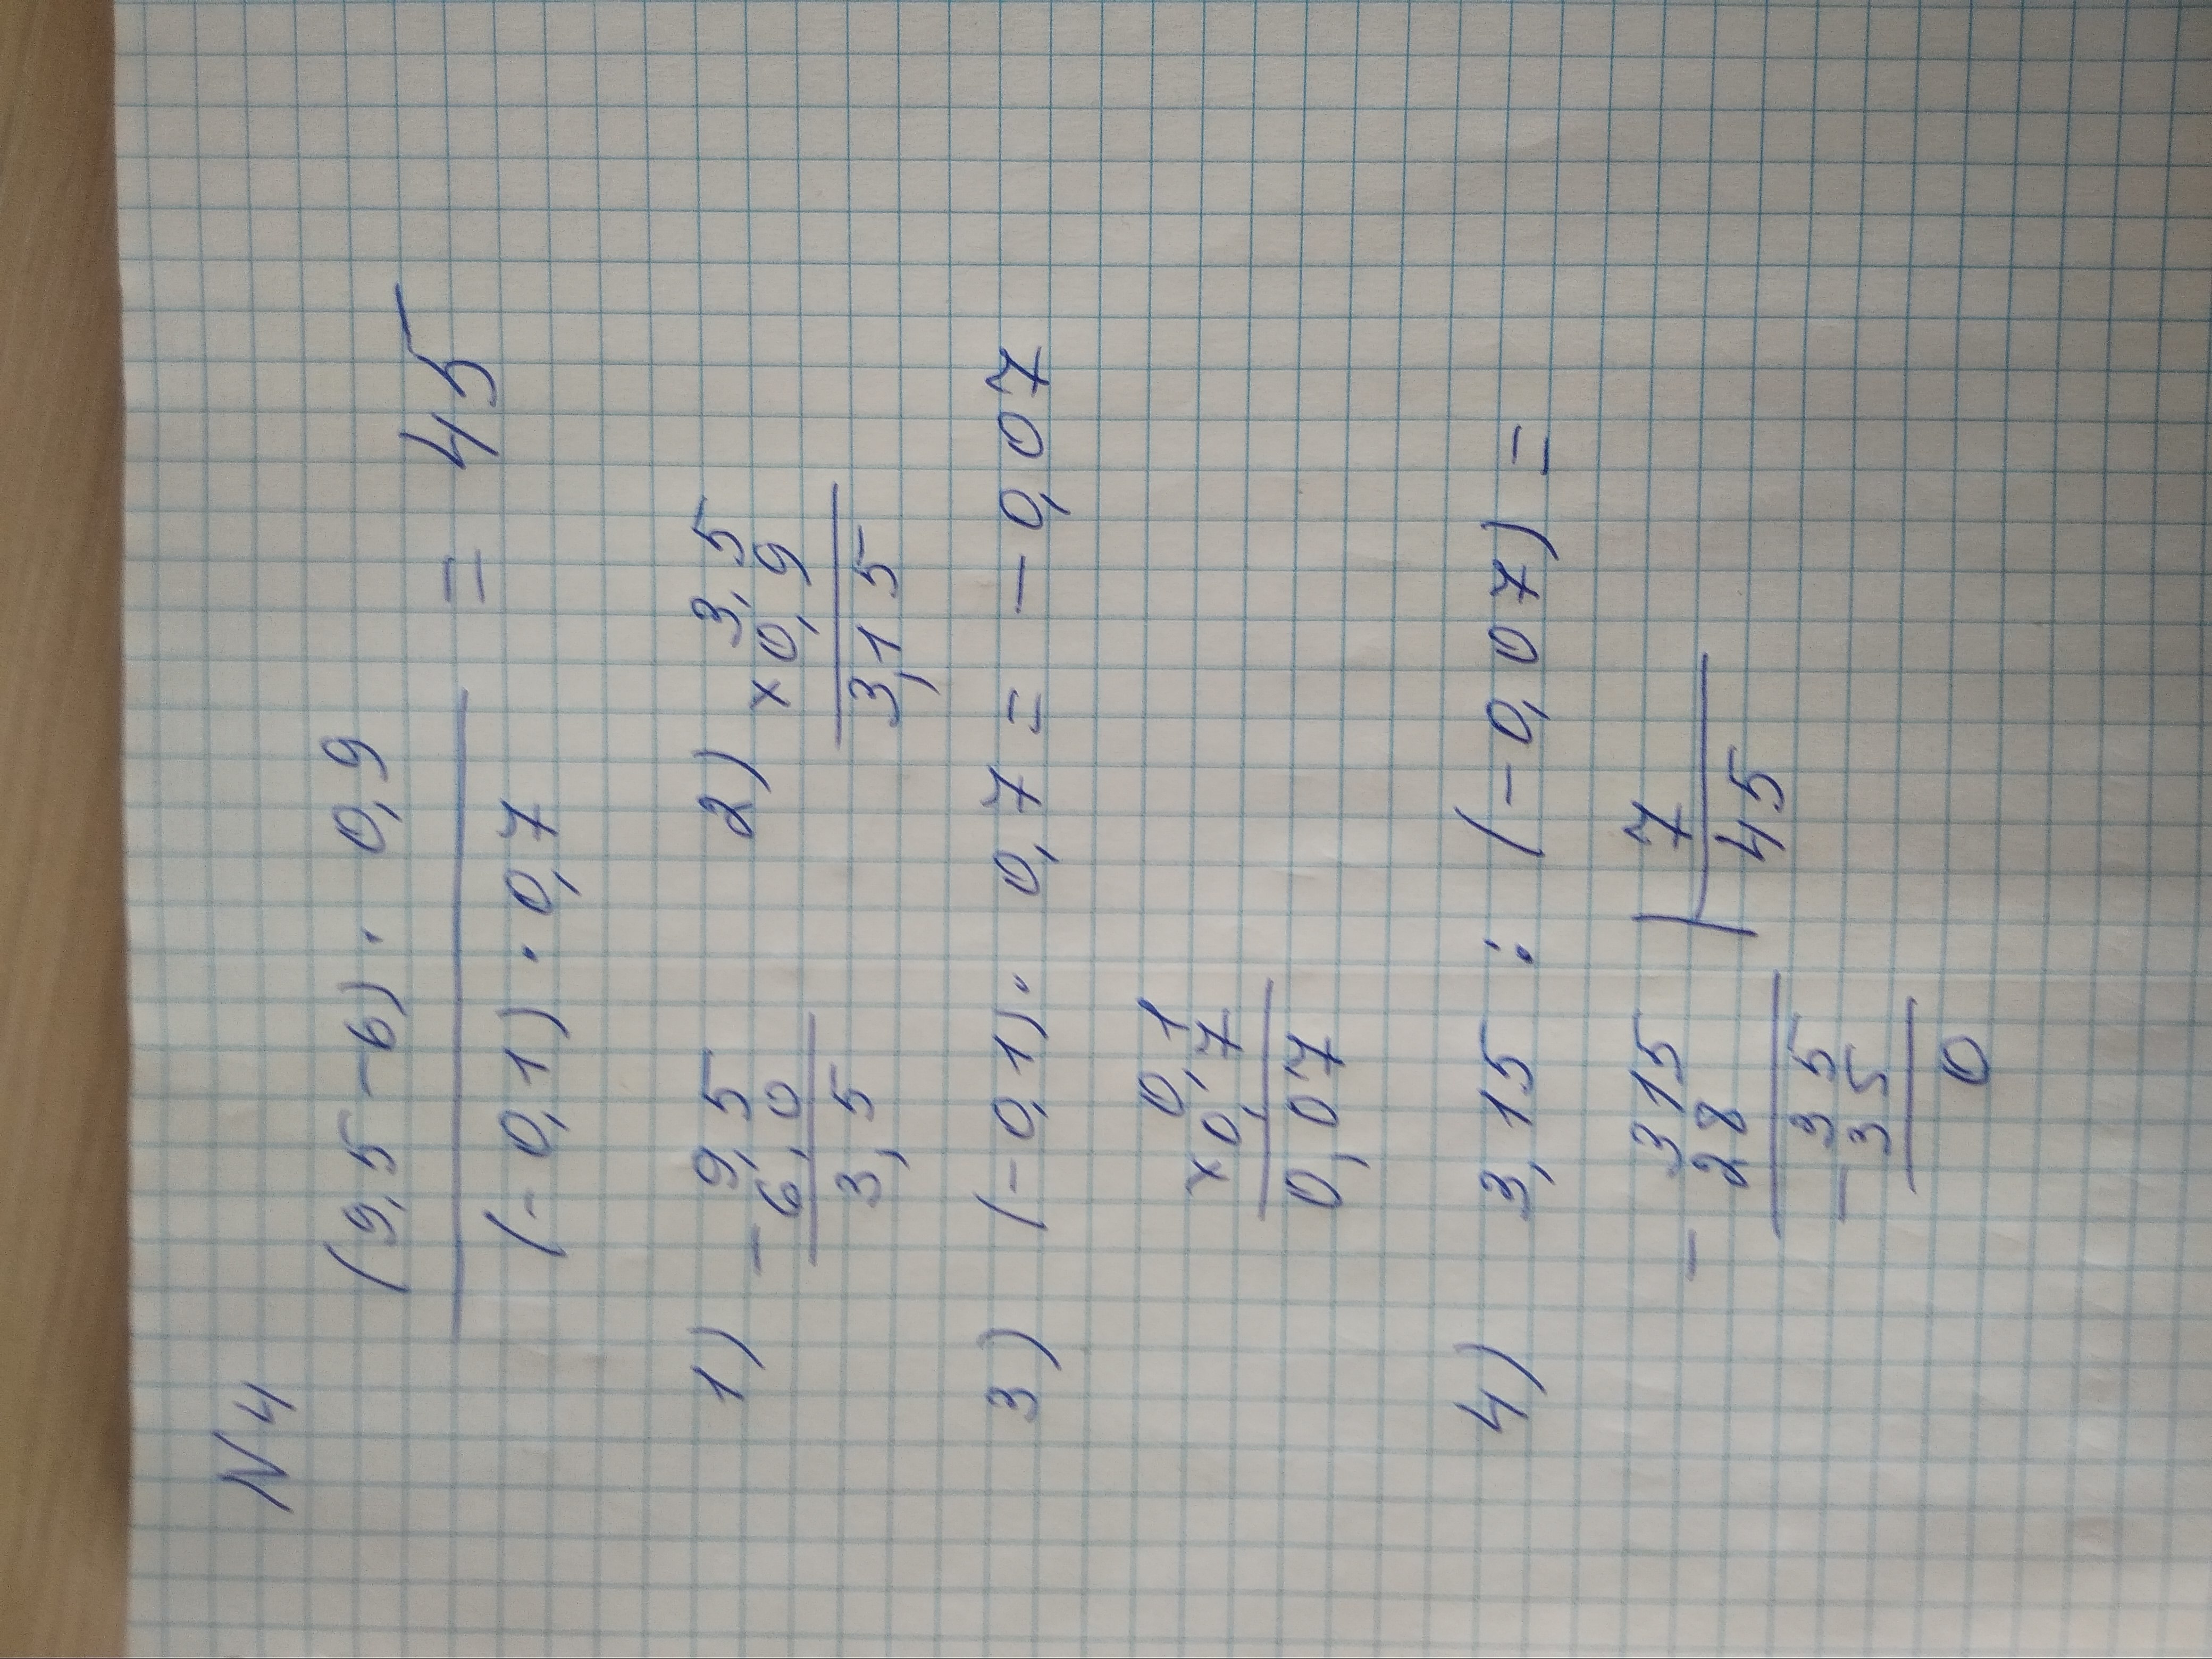 N4
(9,5-6) · 0,9
= 45
(-0,1) · 0,7
1) 9,5 2) 3,5
- 6,0 ×0,9
3,5 3,15
3) (-0,1) · 0,7 = -0,07
0,1
×0,7
0,07
4) 3,15 : (-0,07) =
- 315 7
28 45
35
- 35
0